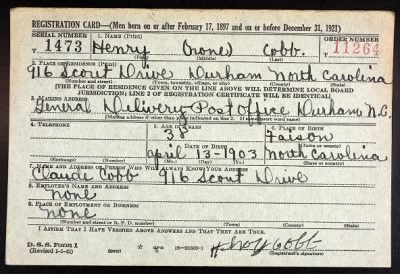 REGISTRATION CARD—(Men born on or after February 17, 1897 and on or before December 31, 1921)
SERIAL NUMBER 1. NAME (Print) ORDER NUMBER
1473 Henry (none) Cobb. 11264
(First) (Middle) (Last)
2. PLACE OF RESIDENCE (Print)
916 Scout Drive Durham North Carolina
(Number and street) (Town, township, village, or city) (County) (State)
[THE PLACE OF RESIDENCE GIVEN ON THE LINE ABOVE WILL DETERMINE LOCAL BOARD
JURISDICTION; LINE 2 OF REGISTRATION CERTIFICATE WILL BE IDENTICAL]
3. MAILING ADDRESS
General Delivery-Post Office Durham N.C.
[Mailing address if other than place indicated on line 2. If same insert word same]
4. TELEPHONE 5. AGE IN YEARS 6. PLACE OF BIRTH
38 Faison
DATE OF BIRTH (Town or county)
april 13-1903 North Carolina
(Exchange) (Number) (Mo.) (Day) (Yr.) (State or country)
7. NAME AND ADDRESS OF PERSON WHO WILL ALWAYS KNOW YOUR ADDRESS
Claude Cobb 916 Scout Drive
8. EMPLOYER'S NAME AND ADDRESS
none
9. PLACE OF EMPLOYMENT OR BUSINESS
none
(Number and street or R. F. D. number) (Town) (County) (State)
I AFFIRM THAT I HAVE VERIFIED ABOVE ANSWERS AND THAT THEY ARE TRUE.
D. S. S. Form 1
(Revised 1-1-42) (over) 16-21630-1
Cobb
(Registrant's signature)